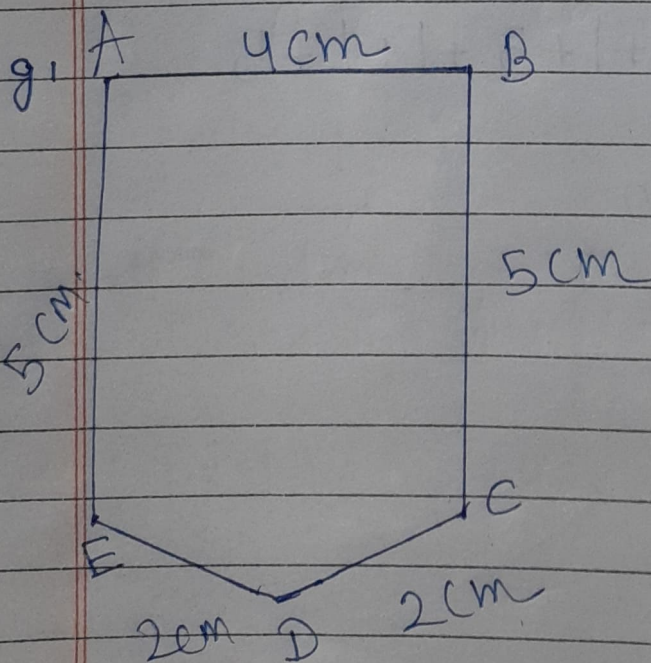 g1 A 4cm B
5cm
5cm
E C
2cm D 2cm